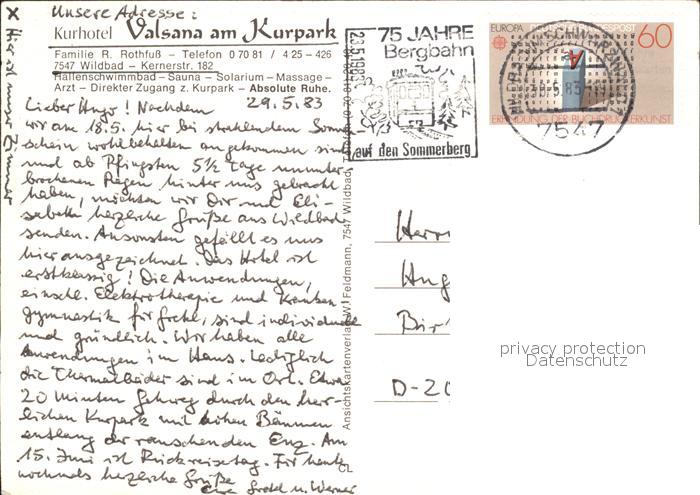 Unsere Adresse:
Kurhotel Valsana am Kurpark
Familie R. Rothfuß – Telefon 0 70 81 / 4 25 - 426
7547 Wildbad – Kernerstr. 182
Hallenschwimmbad – Sauna – Solarium – Massage –
Arzt – Direkter Zugang z. Kurpark – Absolute Ruhe.
x Hier ist unser Zimmer
29.5.83
Lieber Hugo! Nachdem
wir am 18.5. hier bei strahlendem Sonn
schein wohlbehalten angekommen sind
und ab Pfingsten 5½ Tage ununter-
brochenen Regen hinter uns gebracht
haben, möchten wir Dir und Eli-
sabeth herzliche Grüße aus Wildbad
senden. Ansonsten gefällt es uns
hier ausgezeichnet. Das Hotel ist
erstklassig! Die Anwendungen,
einschl. Elektrotherapie und Kranken-
gymnastik für Gretel, sind individuell
und gründlich. Wir haben alle
Anwendungen im Haus. Lediglich
die Thermalbäder sind im Ort. Etwa
20 Minuten Gehweg durch den herr-
lichen Kurpark mit hohen Bäumen
entlang der rauschenden Enz. Am
15. Juni ist Rückreisetag. Für heute
nochmals herzliche Grüße
Eure Gretel u. Werner
Ansichtskartenverlag W. Feldmann, 7547 Wildbad, T
75 JAHRE
Bergbahn
auf den Sommerberg
EUROPA
POST
60
ERFINDUNG DER BUCHDRUCKERKUNST
7547
Herr
Hug
Bir
D-20
privacy protection
Datenschutz